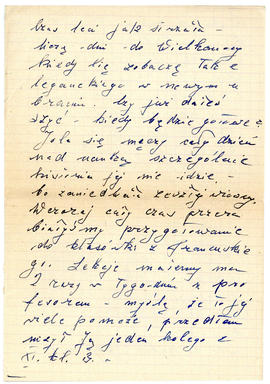 Czas leci jak strzała -
liczę - dni - do Wielkanocy
kiedy Cię zobaczę tak e
leganckiego w nowym u
braniu. Czy już dałeś
szyć - kiedy będzie gotowe?
Jola się męczy cały dzień
nad nauką szczególnie
jej nie idzie -
bo zaniedbała zeszłej wiosny.
Wczoraj cały czas przera
białyśmy przygotowanie
do klasówki z francuskie
go. Lekcje mamy
2 razy w tygodniu z pro
fesorem - myślę, że to jej
wiele pomoże, przedtem
uczył ją jeden kolega z
XI. kl. B. -